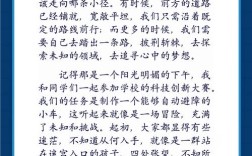 该走向哪条小径。有时候，前方的道路
已经铺就，宽敞平坦，我们只需沿着既
定的路线前行；而更多的时候，我们需
要自己去踏出一条路，披荆斩棘，去探
索未知的领域，去追寻心中的梦想。
记得那是一个阳光明媚的下午，我
和同学们一起参加学校的科技创新大赛。
我们的任务是制作一个能够自动避障的
小车，这听起来就像是一场冒险，充满
了未知和挑战。起初，大家都显得有些
迷茫，不知道从何入手，就像是一群站
在迷宫入口的孩子，四处张望，不知所